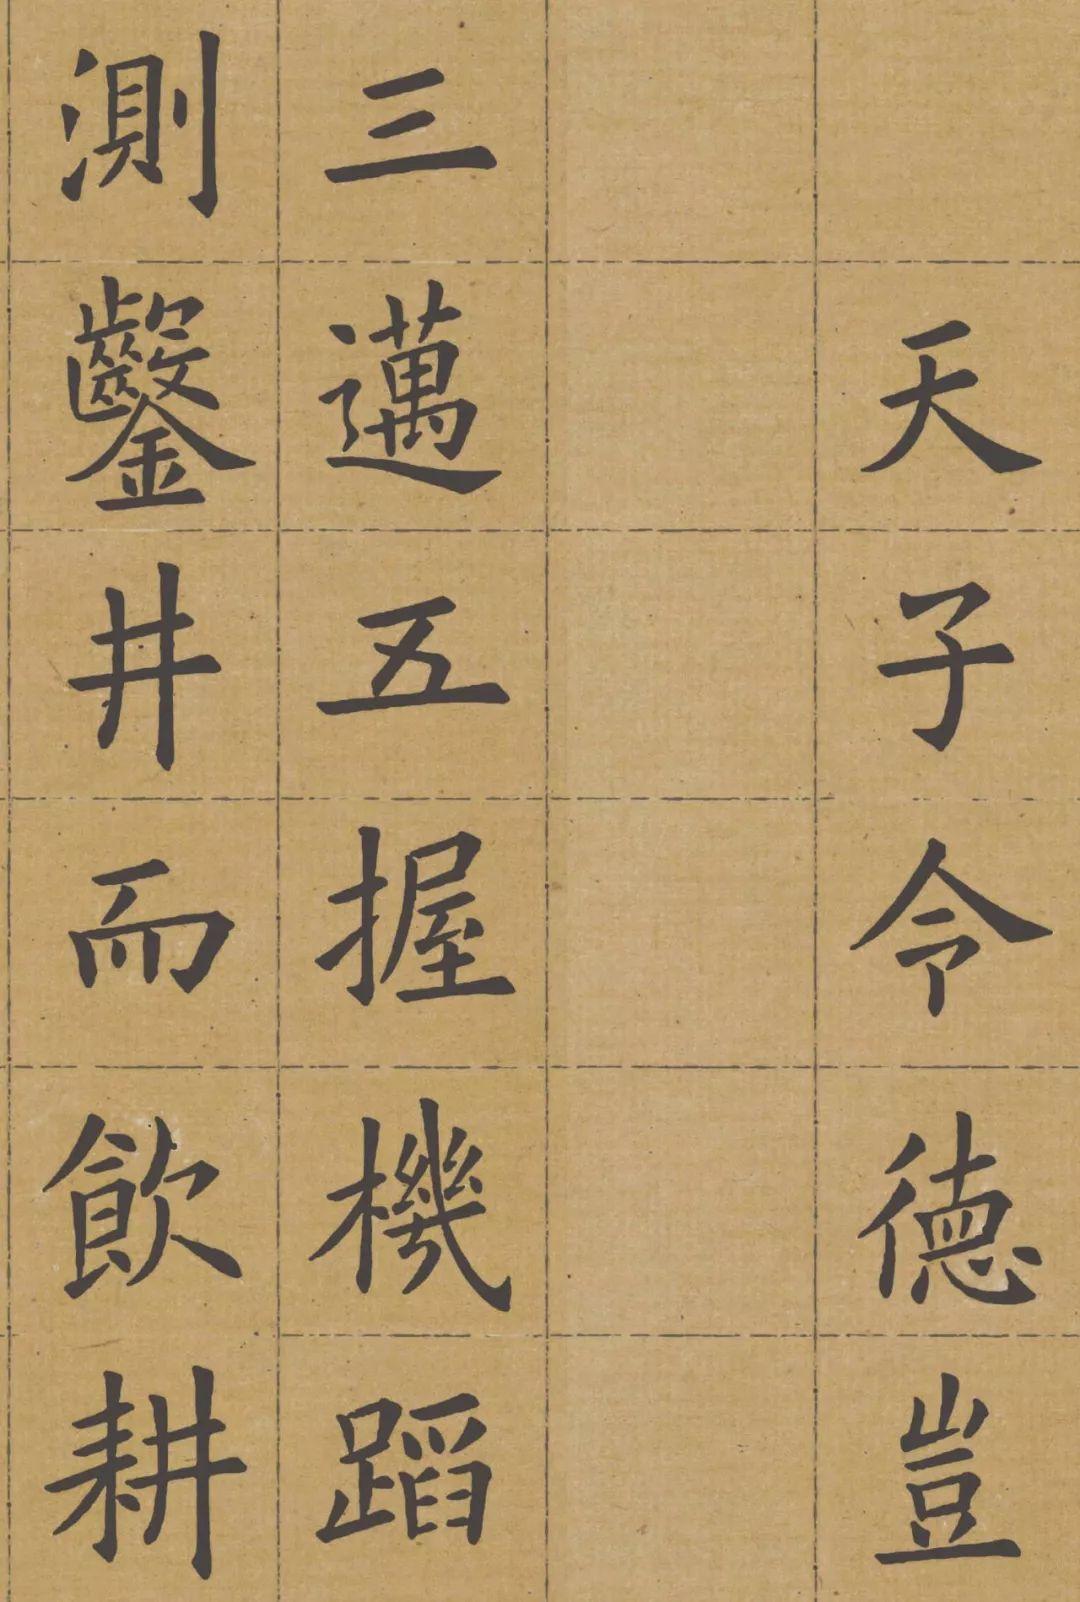 天子令德豈
三邁五握機蹈
測鑿井而飲耕